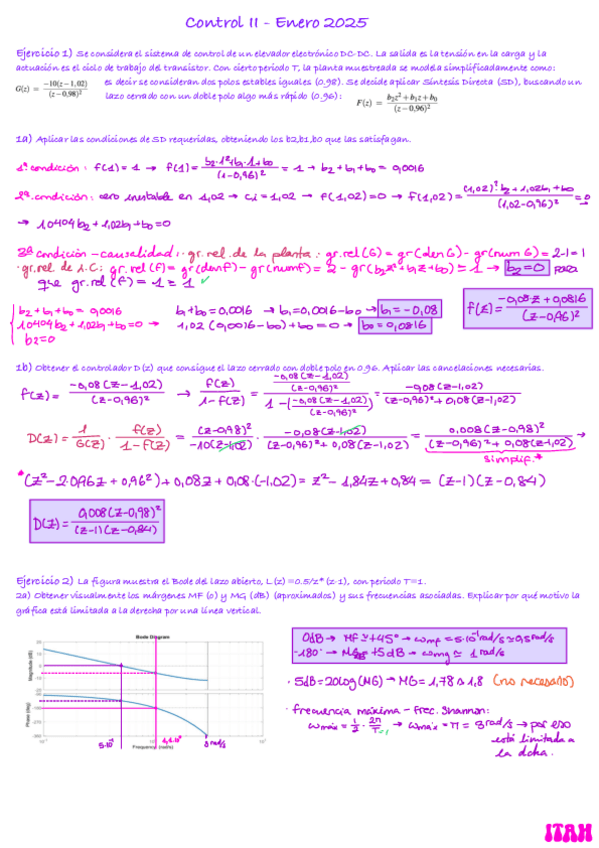 Control II - Enero 2025
Ejercicio 1) Se considera el sistema de control de un elevador electrónico DC-DC. La salida es la tensión en la carga y la
actuación es el ciclo de trabajo del transistor. Con cierto periodo T, la planta muestreada se modela simplificadamente como:
G(z) = -10(z-1,02)/(z-0,98)² es decir se consideran dos polos estables iguales (0.98). Se decide aplicar Síntesis Directa (SD), buscando un
lazo cerrado con un doble polo algo más rápido (0.96): F(z) = b₂z²+b₁z+b₀/(z-0.96)²
1a) Aplicar las condiciones de SD requeridas, obteniendo los b2,b1,b0 que las satisfagan.
1ª condición: f(1)=1 → f(1) = b₂·1²+b₁·1+b₀/(1-0,96)² = 1 → b₂+b₁+b₀ = 0,0016
2ª condición: cero inestable en 1,02 → ci=1,02 → f(1,02)=0 → f(1,02) = (1,02)²·b₂+1,02b₁+b₀/(1,02-0,96)² = 0
→ 1,0404b₂+1,02b₁+b₀=0
3ª condición - causalidad: · gr. rel. de la planta: gr.rel(G) = gr(den G) - gr(num G) = 2-1=1
· gr. rel. de l.C: gr.rel(f) = gr(denf) - gr(numf) = 2 - gr(b₂z²+b₁z+b₀) = 1 → b₂=0 para
que gr.rel(f) = 1 ≥ 1 ✓
b₂+b₁+b₀ = 0,0016
1,0404b₂+1,02b₁+b₀=0 →
b₂=0
b₁+b₀=0,0016 → b₁=0,0016-b₀ → b₁=-0,08
1,02(0,0016-b₀)+b₀=0 → b₀=0,0816
f(z) = -0,08z+0,0816/(z-0,96)²
1b) Obtener el controlador D(z) que consigue el lazo cerrado con doble polo en 0.96. Aplicar las cancelaciones necesarias.
f(z) = -0,08(z-1,02)/(z-0,96)² → f(z)/1-f(z) = -0,08(z-1,02)/(z-0,96)² / 1-(-0,08(z-1,02)/(z-0,96)²) = -0,08(z-1,02)/(z-0,96)²+0,08(z-1,02)
D(z) = 1/G(z) · f(z)/1-f(z) = (z-0,98)²/-10(z-1,02) · -0,08(z-1,02)/(z-0,96)²+0,08(z-1,02) = 0,008(z-0,98)²/(z-0,96)²+0,08(z-1,02) →
simplif.*
*(z²-2·0,96z+0,96²)+0,08z+0,08·(-1,02) = z²-1,84z+0,84 = (z-1)(z-0,84)
D(z) = 0,008(z-0,98)²/(z-1)(z-0,84)
Ejercicio 2) La figura muestra el Bode del lazo abierto, L(z)=0.5/z*(z-1), con periodo T=1.
2a) Obtener visualmente los márgenes MF (o) y MG (dB) (aproximados) y sus frecuencias asociadas. Explicar por qué motivo la
gráfica está limitada a la derecha por una línea vertical.
Bode Diagram
Magnitude (dB)
Phase (deg)
Frequency (rad/s)
5·10⁻¹
π rad/s
0dB → MF ≃ +45° → ωmf = 5·10⁻¹ rad/s ≃ 0,5 rad/s
-180° → MG +5dB → ωmg ≃ 1 rad/s
· 5dB = 20log(MG) → MG = 1,78 ≃ 1,8 (no necesario)
· frecuencia máxima - frec. Shannon:
ωmáx = 1/2 · 2π/T → ωmáx = π = 3 rad/s → por eso
está limitada a
la dcha.
ITAH